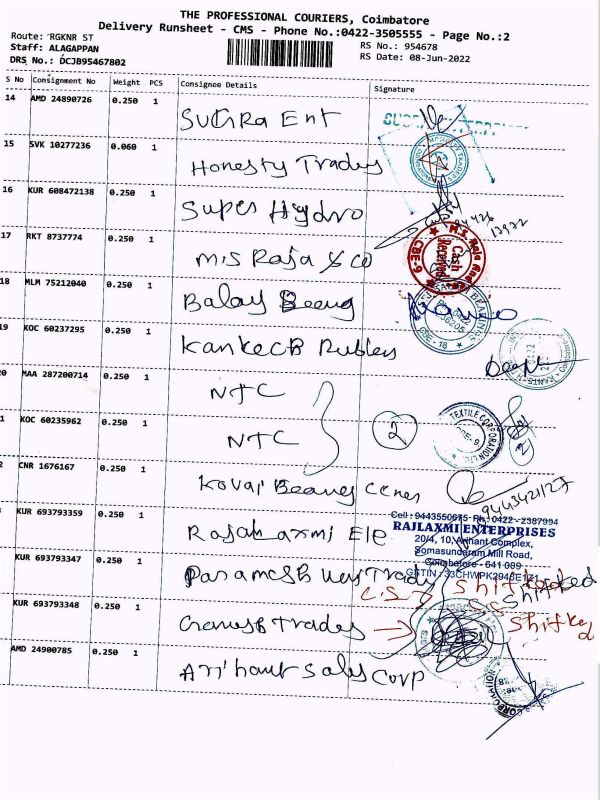 THE PROFESSIONAL COURIERS, Coimbatore
Delivery Runsheet - CMS - Phone No.:0422-3505555 - Page No.:2
Route: RGKNR ST
RS No.: 954678
Staff: ALAGAPPAN
RS Date: 08-Jun-2022
DRS No.: DCJB95467802
S No Consignment No Weight PCS Consignee Details Signature
14 AMD 24890726 0.250 1 Sugra Ent
15 SVK 10277236 0.060 1 Honesty Trades
16 KUR 608472138 0.250 1 Super Hydro
17 RKT 8737774 0.250 1 M/S Raja & Co
Cash Received
CBE-9
18 MLM 75212040 0.250 1 Balay Beang
CBE-18
19 KOC 60237295 0.250 1 Rubbers
0 MAA 287200714 1 NTC
TEXTILE CORPORATION
2
1 KOC 60235962 0.250 1 NTC
2 CNR 1676167 0.250 1 Kovai
9443421127
KUR 693793359 0.250 1 Rajalaxmi Ele
Cell: 9443550975 Ph: 0422 - 2387994
RAJLAXMI ENTERPRISES
20/4, 10, Arihant Complex,
Somasundaram Mill Road,
Coimbatore - 641 009
KUR 693793347 0.250 1
Shifted
KUR 693793348 0.250 1 Trades
AMD 24900785 0.250 1 Arihant Sales Corp
CORPORATION